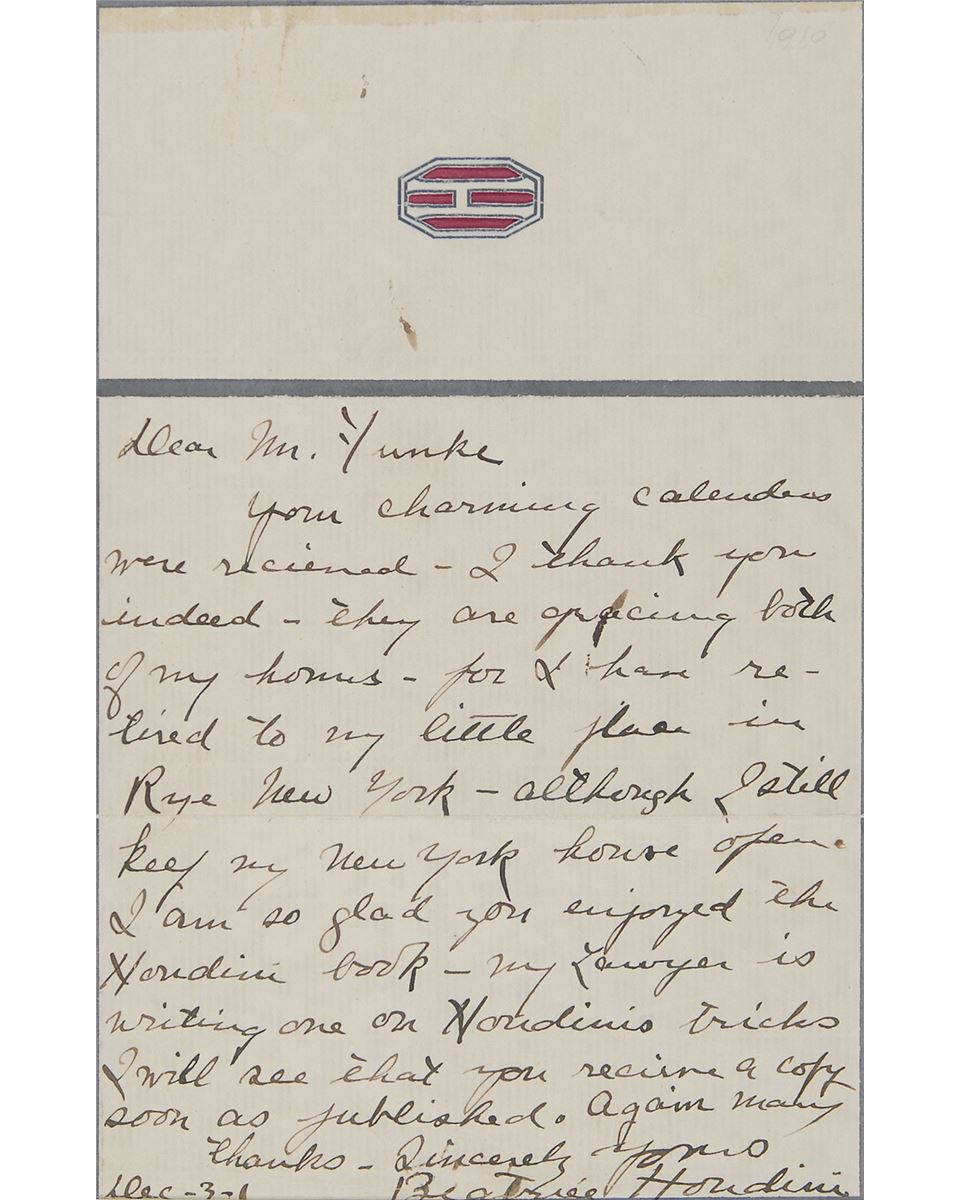 1910
H
Dear Mr. Yunke
Your charming calendars
were recieved - I thank you
indeed - they are gracing both
of my homes - for I have re-
tired to my little place in
Rye New York - although I still
keep my New York house open.
I am so glad you enjoyed the
Houdini book - my Lawyer is
writing one on Houdinis tricks
I will see that you recieve a copy
soon as published. Again many
thanks - Sincerely yours
Dec - 3 - Beatrice Houdini